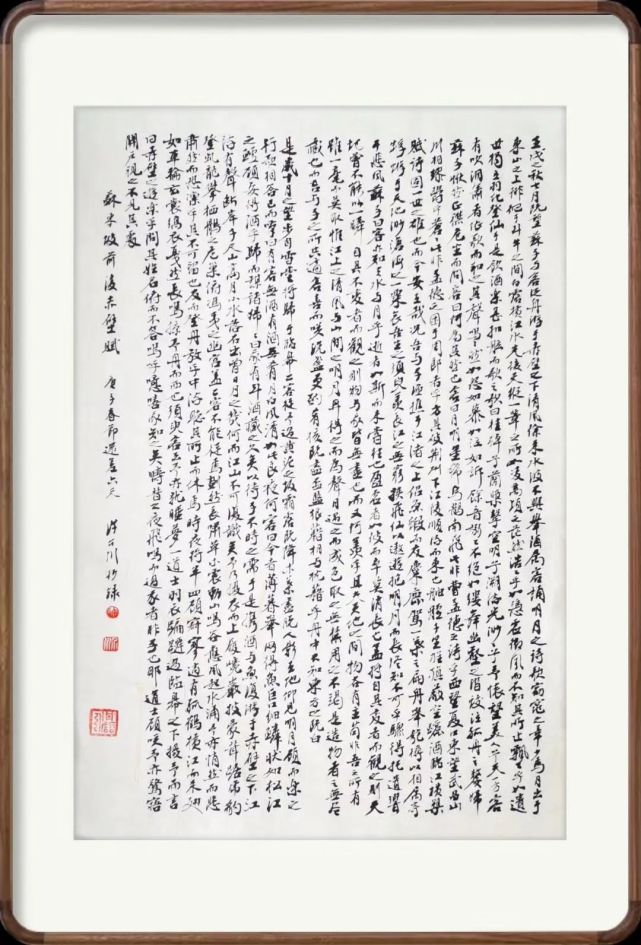 壬戌之秋七月既望蘇子與客泛舟游于赤壁之下清風徐來水波不興舉酒屬客誦明月之詩歌窈窕之章少焉月出于
東山之上徘徊于斗牛之間白露橫江水光接天縱一葦之所如凌萬頃之茫然浩浩乎如馮虛御風而不知其所止飄飄乎如遺
世獨立羽化登仙于是飲酒樂甚扣舷而歌之歌曰桂棹兮蘭槳擊空明兮溯流光渺渺兮予懷望美人兮天一方客
有吹洞簫者依歌而和之其聲嗚嗚然如怨如慕如泣如訴餘音裊裊不絕如縷舞幽壑之潛蛟泣孤舟之嫠婦
蘇子愀然正襟危坐而問客曰何為其然也客曰月明星稀烏鵲南飛此非曹孟德之詩乎西望夏口東望武昌山
川相繆鬱乎蒼蒼此非孟德之困于周郎者乎方其破荊州下江陵順流而東也舳艫千里旌旗蔽空釃酒臨江橫槊
賦詩固一世之雄也而今安在哉況吾與子漁樵于江渚之上侶魚蝦而友麋鹿駕一葉之扁舟舉匏樽以相屬寄
蜉蝣于天地渺滄海之一粟哀吾生之須臾羨長江之無窮挾飛仙以遨遊抱明月而長終知不可乎驟得托遺響
于悲風蘇子曰客亦知夫水與月乎逝者如斯而未嘗往也盈虛者如彼而卒莫消長也蓋將自其變者而觀之則天
地曾不能以一瞬自其不變者而觀之則物與我皆無盡也而又何羨乎且夫天地之間物各有主苟非吾之所有
雖一毫而莫取惟江上之清風與山間之明月耳得之而為聲目遇之而成色取之無禁用之不竭是造物者之無盡
藏也而吾與子之所共適客喜而笑洗盞更酌肴核既盡杯盤狼藉相與枕藉乎舟中不知東方之既白
是歲十月之望步自雪堂將歸于臨皋二客從予過黃泥之坂霜露既降木葉盡脫人影在地仰見明月顧而樂之
行歌相答已而嘆曰有客無酒有酒無肴月白風清如此良夜何客曰今者薄暮舉網得魚巨口細鱗狀如松江
之鱸顧安所得酒乎歸而謀諸婦婦曰我有斗酒藏之久矣以待子不時之需于是攜酒與魚復游于赤壁之下江
流有聲斷岸千尺山高月小水落石出曾日月之幾何而江山不可復識矣予乃攝衣而上履巉巖披蒙茸踞虎豹
登虬龍攀棲鶻之危巢俯馮夷之幽宮蓋二客不能從焉劃然長嘯草木震動山鳴谷應風起水涌予亦悄然而悲
肅然而恐凜乎其不可留也反而登舟放乎中流聽其所止而休焉時夜將半四顧寂寥適有孤鶴橫江東來翅
如車輪玄裳縞衣戛然長鳴掠予舟而西也須臾客去予亦就睡夢一道士羽衣蹁躚過臨皋之下揖予而言
曰赤壁之遊樂乎問其姓名俯而不答嗚呼噫嘻我知之矣疇昔之夜飛鳴而過我者非子也耶道士顧笑予亦驚寤
開戶視之不見其處
蘇東坡前後赤壁賦 庚子春節 川抄錄